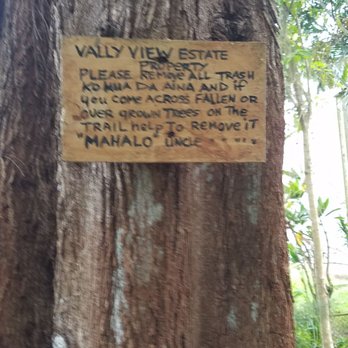 VALLY VIEW ESTATE
PROPERTY
PLEASE REMOVE ALL TRASH
KO KUA DA AINA AND if
you come ACROSS FALLEN OR
over grown TREES ON THE
TRAIL help To REMOVE IT
"MAHALO" UNCLE